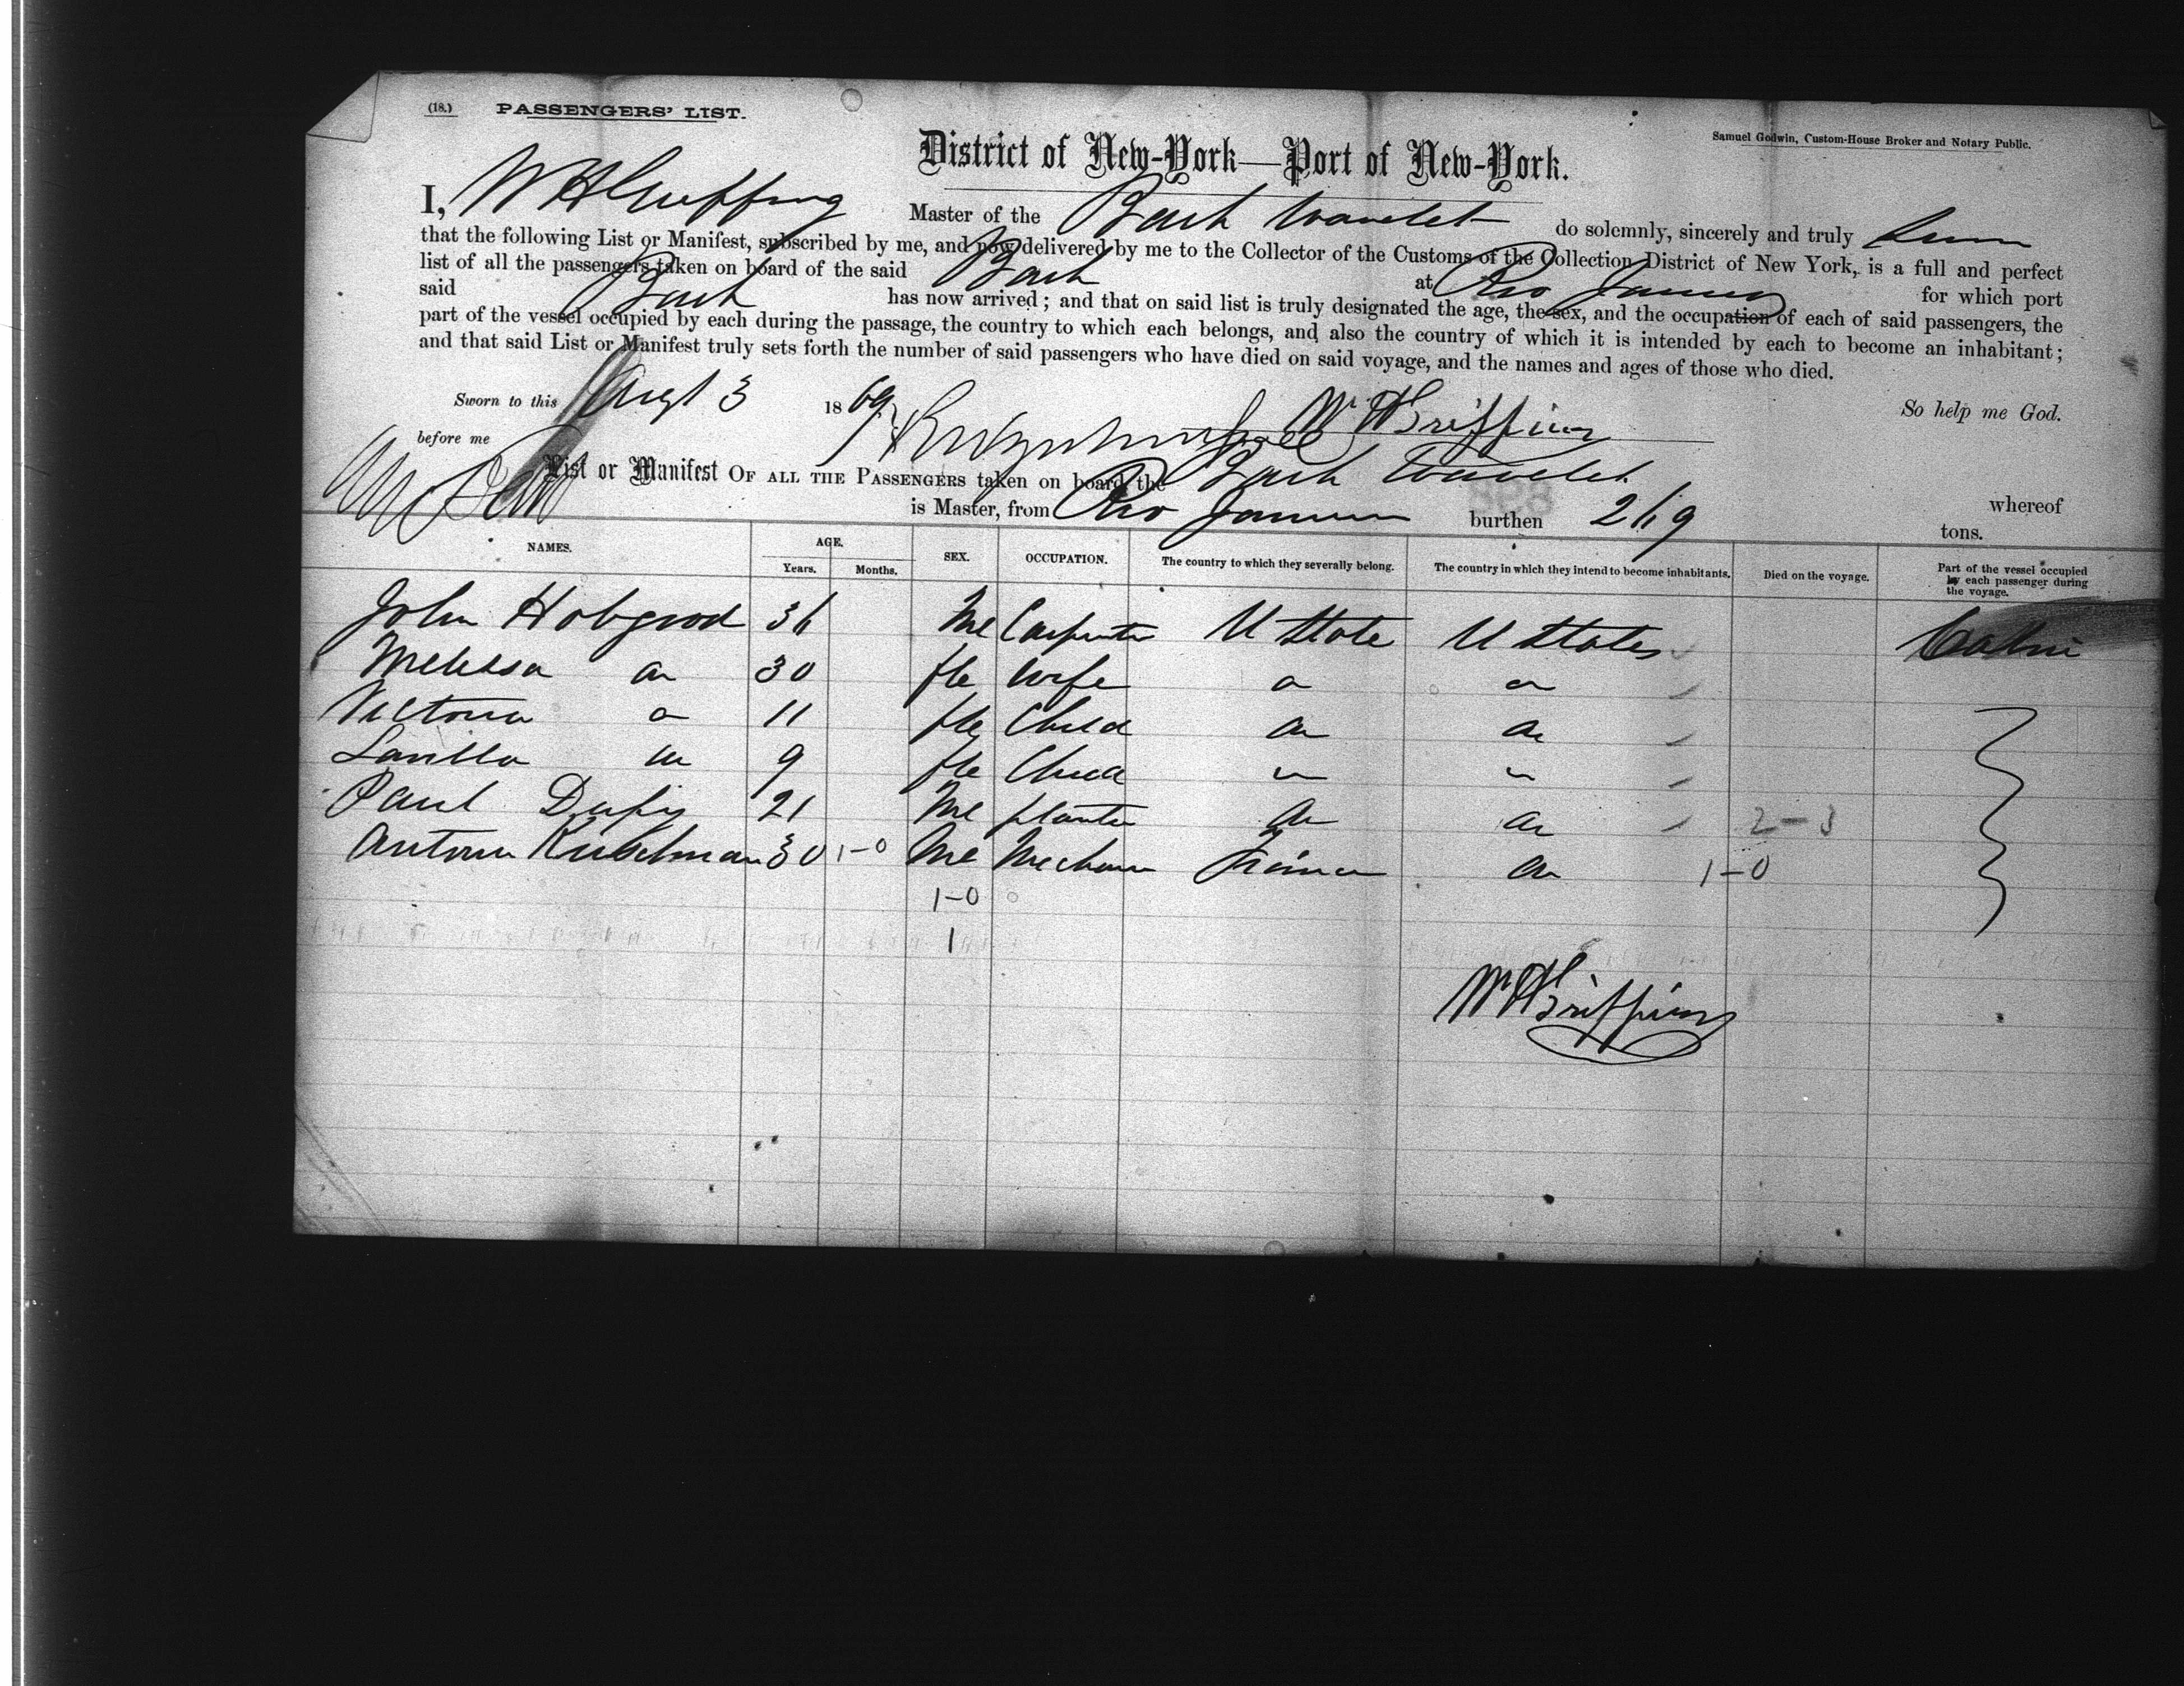 (18.) PASSENGERS' LIST.
Samuel Godwin, Custom-House Broker and Notary Public.
District of New-York—Port of New-York.
I, W H Griffing Master of the Bark Wavelet do solemnly, sincerely and truly
that the following List or Manifest, subscribed by me, and now delivered by me to the Collector of the Customs of the Collection District of New York, is a full and perfect
list of all the passengers taken on board of the said Bark at Rio Janeiro for which port
said Bark has now arrived; and that on said list is truly designated the age, the sex, and the occupation of each of said passengers, the
part of the vessel occupied by each during the passage, the country to which each belongs, and also the country of which it is intended by each to become an inhabitant;
and that said List or Manifest truly sets forth the number of said passengers who have died on said voyage, and the names and ages of those who died.
Sworn to this Augt 3 1869 So help me God.
before me W H Griffing
List or Manifest OF ALL THE PASSENGERS taken on board the Bark Wavelet whereof
is Master, from Rio Janeiro burthen tons.
NAMES. AGE. Years. Months. SEX. OCCUPATION. The country to which they severally belong. The country in which they intend to become inhabitants. Died on the voyage. Part of the vessel occupied by each passenger during the voyage.
John Hobgood 36 Me Carpenter U State U States Cabin
Melissa do 30 fle Wife do do
Victoria do 11 fle Child do do
Lavilla do 9 fle Child " "
Paul Dupuy 21 Me planter do do 2-3
Antoine 30 1-0 Me Mechanic do 1-0
1-0
1
W H Griffing